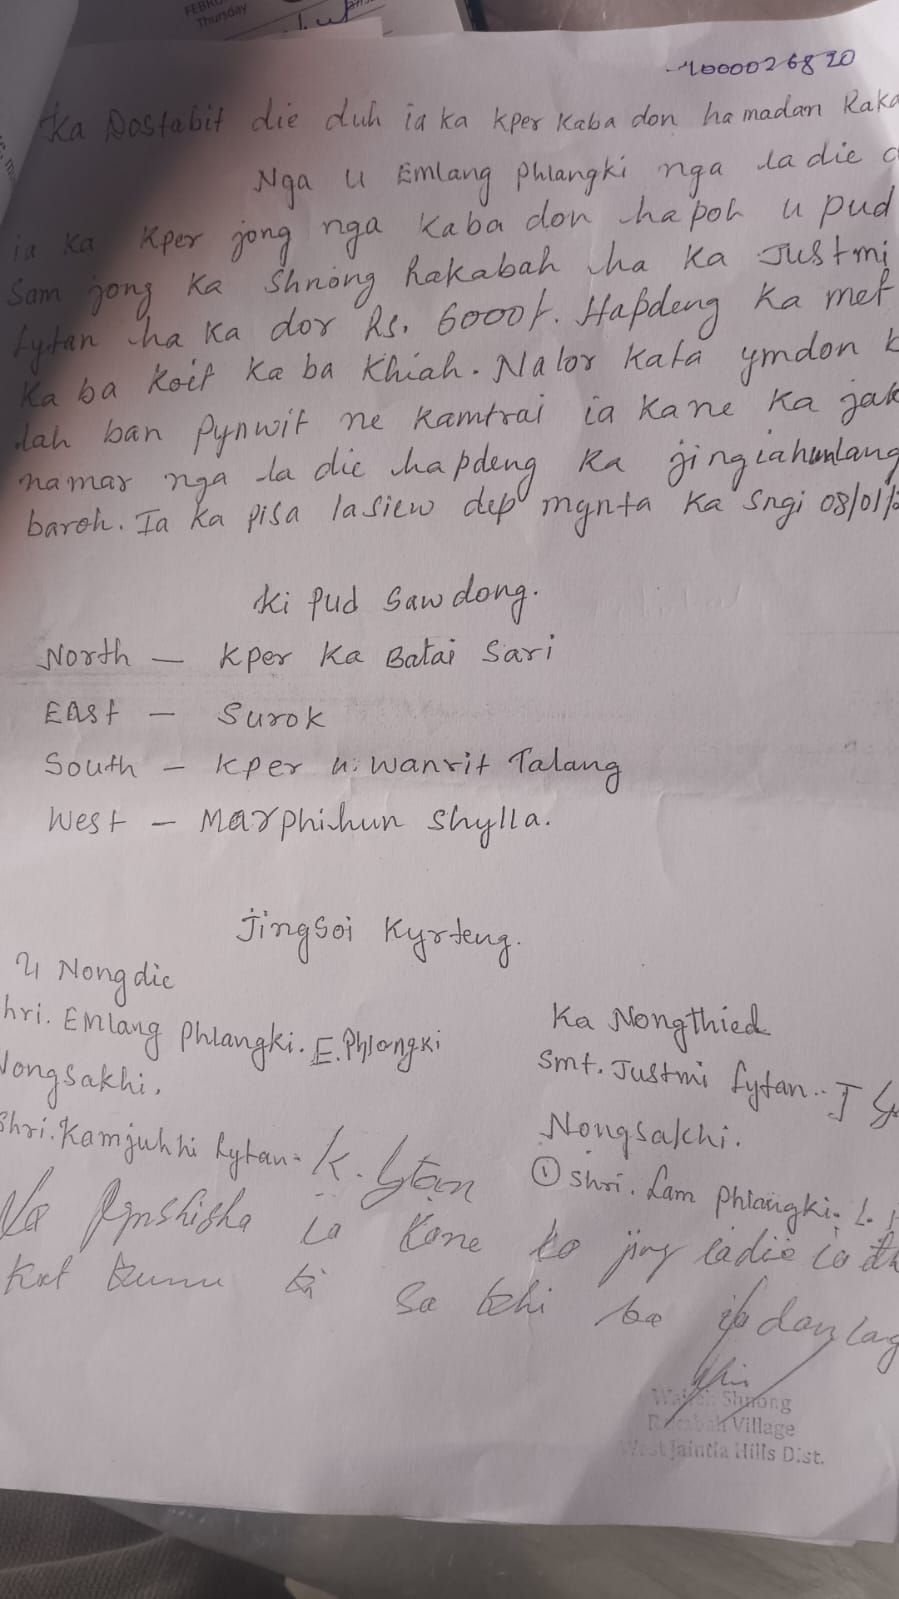 FEBRU
Thursday
1000026820
Ka Dostabit die duh ia ka kper kaba don ha madan Raka
Nga u Emlang Phlangki nga la die
ia ka kper jong nga kaba don hapoh u pud
Sam jong ka Shnong Rakabah ha ka Justmi
Lytan ha ka dor Rs. 6000/-. Hapdeng ka met
ka ba koit ka ba khiah. Nalor kata ymdon
lah ban pynwit ne kamtrai ia kane ka jak
namar nga la die hapdeng ka jingiahunlang
baroh. Ia ka pisa lasiew dep mynta ka sngi 08/01/
ki pud sawdong.
North — kper ka Batai Sari
EAst — Surok
South — kper u. Wanrit Talang
West — Marphihun Shylla.
Jingsoi Kyrteng.
U Nongdie
hri. Emlang Phlangki. E. Phlangki
Nongsakhi.
Shri. Kamjuhhi Lytan - K. Lytan
Ka Nongthied
Smt. Justmi Lytan.. J
Nongsakhi.
① Shri. Lam Phlangki. L.
Nga Pynshisha ia kane ka jing iadie ia
kat kumu ki sakhi ba ia don lang
Waheh Shnong
Rakabah Village
West Jaintia Hills Dist.